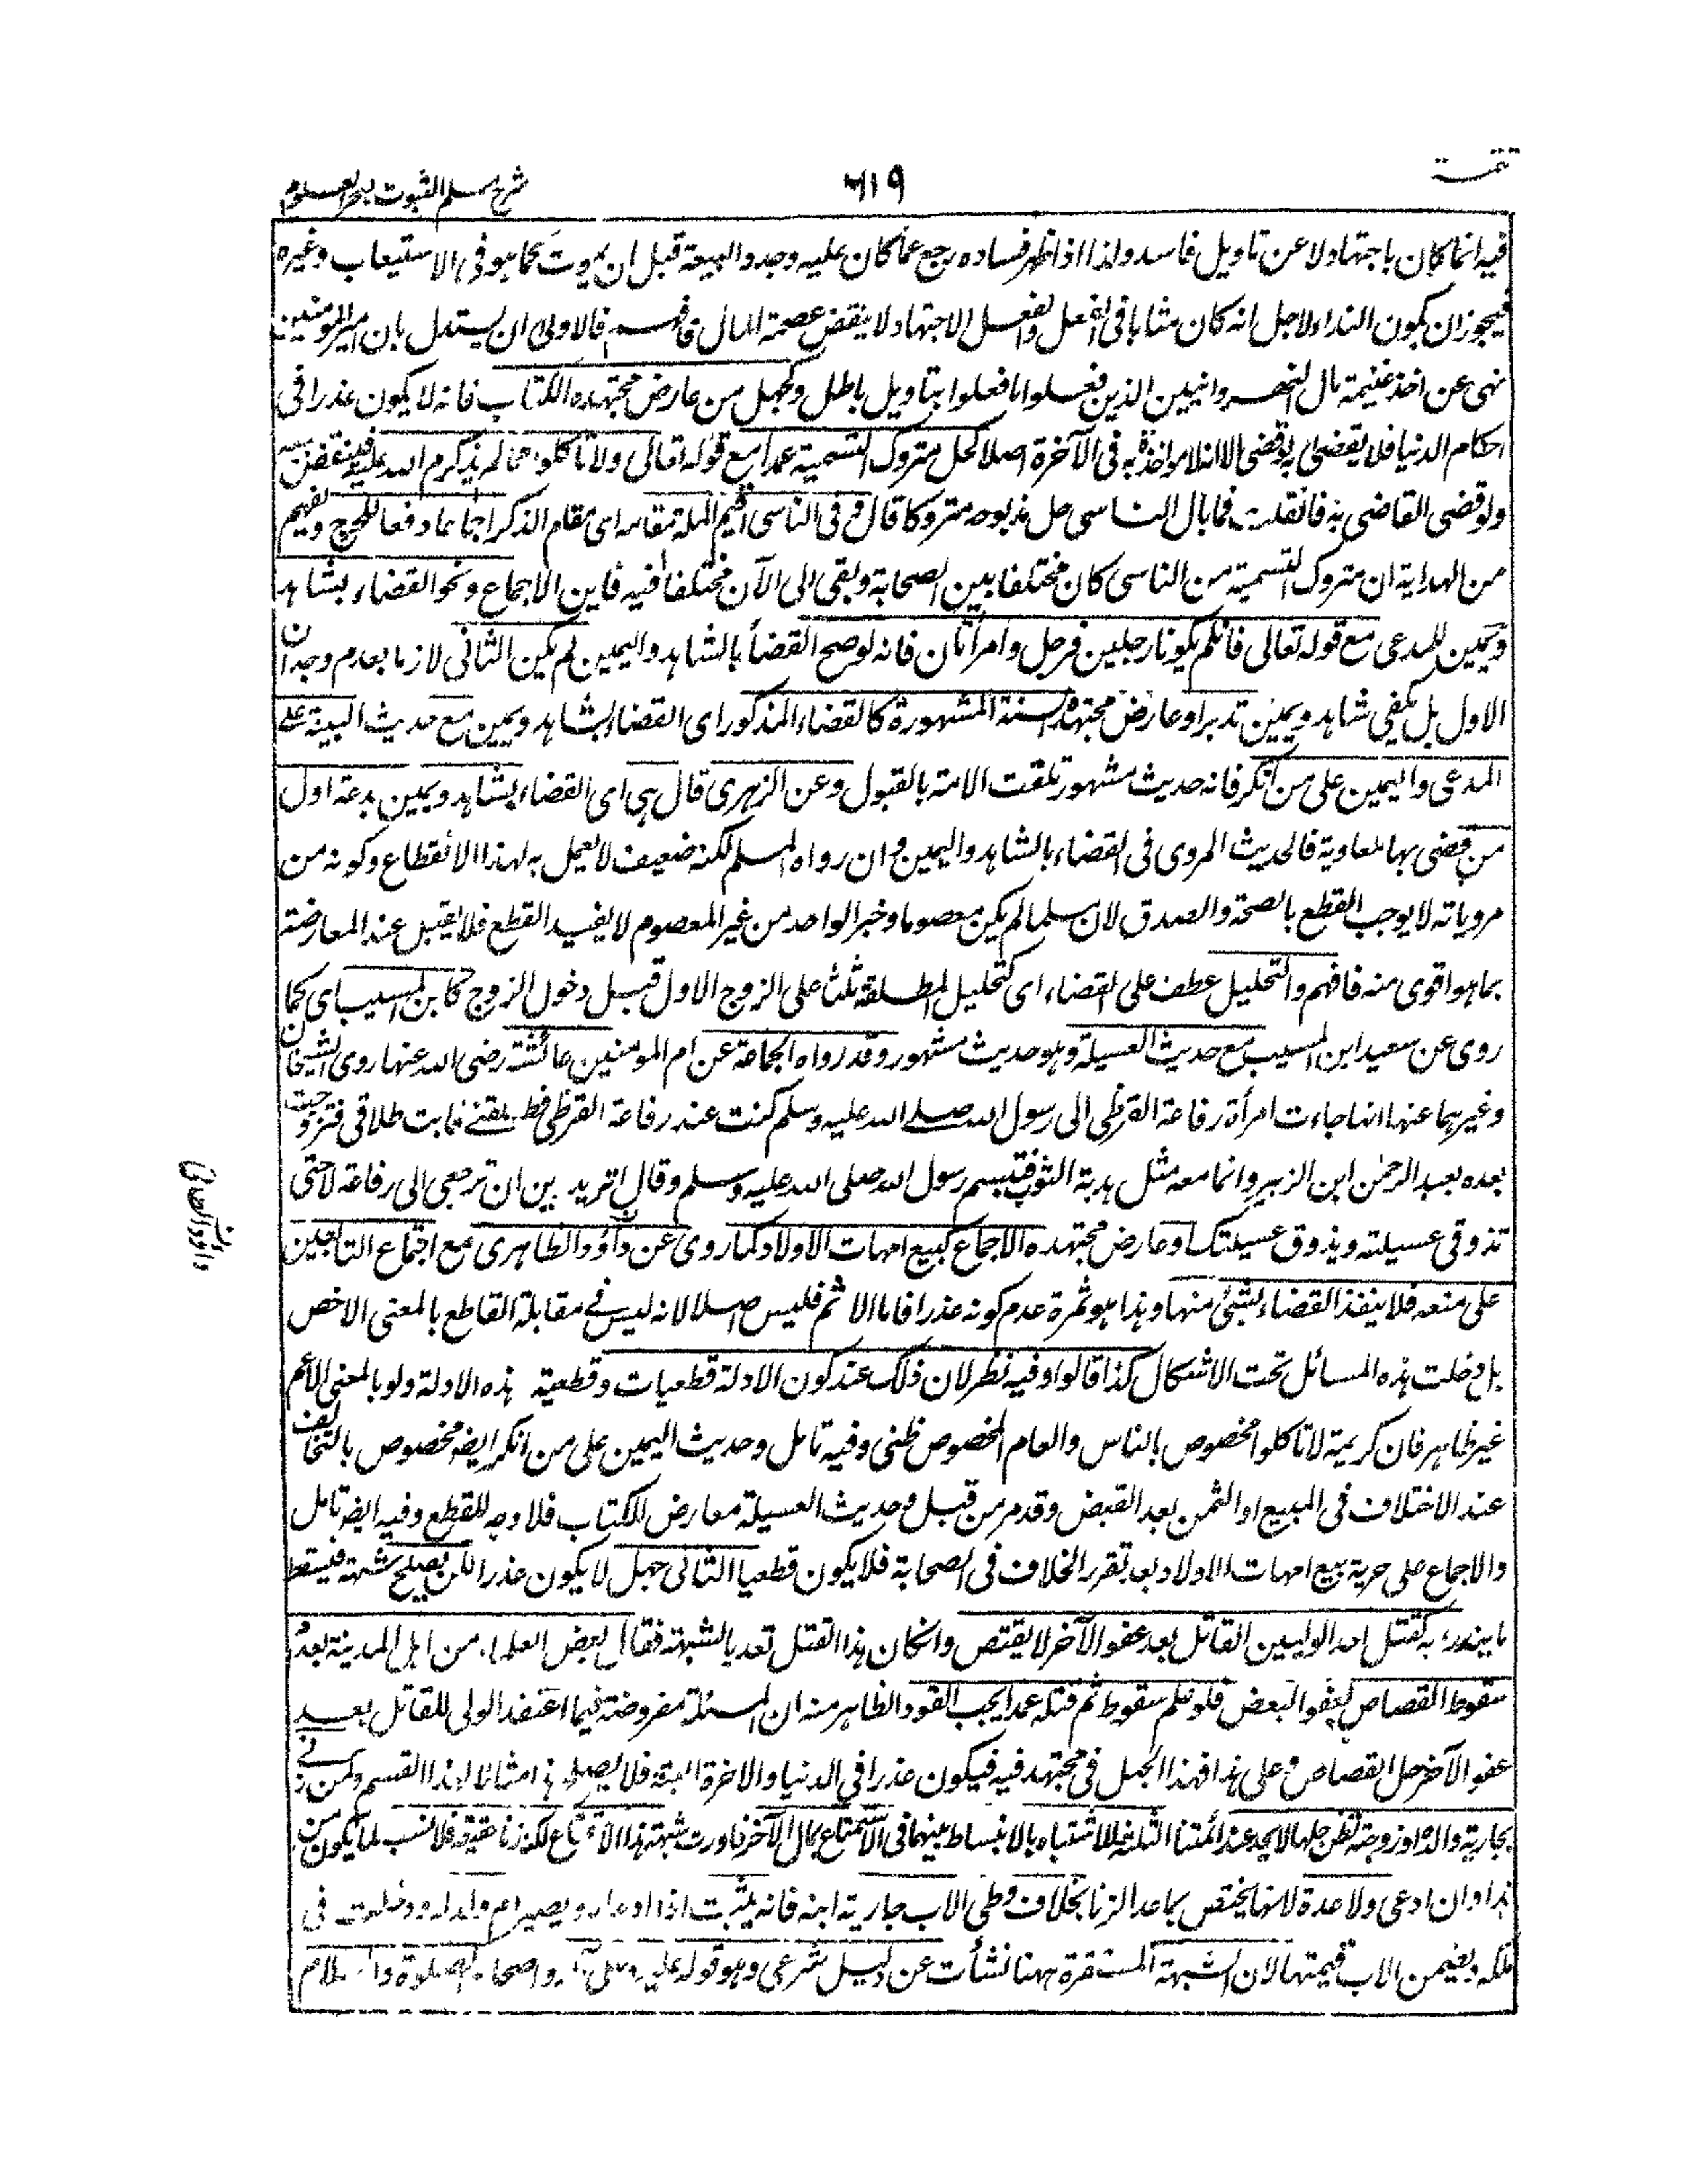 تتمة ٦١٩ شرح مسلم الثبوت لبحر العلوم
فيه انما كان باجتهاد لا عن تاويل فاسد ولذا اذا ظهر فساده رجع عما كان عليه وجدد البيعة قبل ان يموت كما هو فى الاستيعاب وغيره
فيجوز ان يكون النداء لاجل انه كان مثابا فى الفعل والفعل الاجتهاد لا ينقض عصمة المال فافهم فالاولى ان يستدل بان امير المومنين
نهى عن اخذ غنيمة مال النهروانيين الذين فعلوا ما فعلوا بتاويل باطل وكجهل من عارض مجتهده الكتاب فانه لا يكون عذرا فى
احكام الدنيا فلا يقضى به ولو قضى الا انه لا مواخذة به فى الآخرة اصلا كحل متروك التسمية عمدا مع قوله تعالى ولا تاكلوا مما لم يذكر اسم الله عليه فينقض
ولو قضى القاضى به فان قلت فما بال الناسى حل مذبوحه متروكا قال و فى الناسى اقيم الملة مقامه اى مقام الذكر اجماعا دفعا للحرج ويفهم
من الهداية ان متروك التسمية من الناسى كان مختلفا بين الصحابة وبقى الى الآن مختلفا فيه فاين الاجماع ونحو القضاء بشاهد
ويمين للمدعى مع قوله تعالى فان لم يكونا رجلين فرجل وامرأتان فانه لو صح القضأ بالشاهد واليمين لم يكن الثانى لازما بعدم وجدان
الاول بل يكفى شاهد ويمين تدبر او عارض مجتهده السنة المشهورة كالقضاء المذكور اى القضاء بشاهد ويمين مع حديث البينة على
المدعى واليمين على من انكر فانه حديث مشهور تلقت الامة بالقبول وعن الزهرى قال هى اى القضاء بشاهد ويمين بدعة اول
من قضى بها معاوية فالحديث المروى فى القضاء بالشاهد واليمين وان رواه المسلم لكنه ضعيف لا يعمل به لهذا الانقطاع وكونه من
مروياته لا يوجب القطع بالصحة والصدق لان مسلما لم يكن معصوما وخبر الواحد من غير المعصوم لا يفيد القطع فلا يقبل عند المعارضة
بما هو اقوى منه فافهم والتحليل عطف على القضاء اى كتحليل المطلقة ثلثا على الزوج الاول قبل دخول الزوج كابن المسيب اى كما
روى عن سعيد ابن المسيب مع حديث العسيلة وهو حديث مشهور وقد رواه الجماعة عن ام المومنين عائشة رضى الله عنها روى الشيخان
وغيرهما عنها انها جاءت امرأة رفاعة القرظى الى رسول الله صلى الله عليه وسلم كنت عند رفاعة القرظى فطلقنى فابت طلاقى فتزوجت
بعده بعبد الرحمن ابن الزبير وانما معه مثل هدبة الثوب فتبسم رسول الله صلى الله عليه وسلم وقال اتريدين ان ترجعى الى رفاعة لا حتى
تذوقى عسيلته ويذوق عسيلتك او عارض مجتهده الاجماع كبيع امهات الاولاد كما روى عن داؤد الظاهرى مع اجماع التابعين
على منعه فلا ينفذ القضاء بشئ منها وهذا هو ثمرة عدم كونه عذرا فاما الاثم فليس اصلا لانه ليس فى مقابلة القاطع بالمعنى الاخص
بل دخلت هذه المسائل تحت الاشكال كذا قالوا وفيه نظر لان ذلك عند كون الادلة قطعيات وقطعية هذه الادلة ولو بالمعنى الاعم
غير ظاهر فان كريمة لا تاكلوا مخصوص بالناس والعام المخصوص ظنى وفيه تامل وحديث اليمين على من انكر ايضه مخصوص بالتخالف
عند الاختلاف فى المبيع او الثمن بعد القبض وقد مر من قبل وحديث العسيلة معارض للكتاب فلا وجه للقطع وفيه ايضه تامل
والاجماع على حرمة بيع امهات الاولاد بعد تقرر الخلاف فى الصحابة فلا يكون قطعيا الثانى جهل لا يكون عذرا لكن يصلح شبهة فيسقط
ما يندرء به كقتل احد الوليين القاتل بعد عفو الآخر لا يقتص وان كان هذا القتل تعديا لشبهة فقال بعض العلماء من اهل المدينة بعدم
سقوط القصاص بعفو البعض فلو علم سقوط ثم قتله عمدا يجب القود الظاهر منه ان المسئلة مفروضة فيما اعتقد الولى للقاتل بعد
عفو الآخر حل القصاص وعلى هذا فهذا الجهل فى مجتهد فيه فيكون عذرا فى الدنيا والاخرة البتة فلا يصلح هذا مثالا لهذا القسم وكمن زنى
بجارية والده او زوجته لظن حلها لا يحد عند ائمتنا الثلثة للاشتباه بالانبساط بينهما فى الاستمتاع بمال الآخر فاورث شبهة هذا الاستمتاع لكن زنا حقيقة فلا نسب لما يكون من
هذا وان ادعى ولا عدة لانها يختص بما عدا الزنا بخلاف وطى الاب جارية ابنه فانه يثبت اذا ادعاه ويصير ام ولد له ودخلت فى
ملكه ويضمن الاب قيمتها لان الشبهة المستقرة ههنا نشأت عن دليل شرعى وهو قوله عليه وعلى آله واصحابه الصلوة والسلام